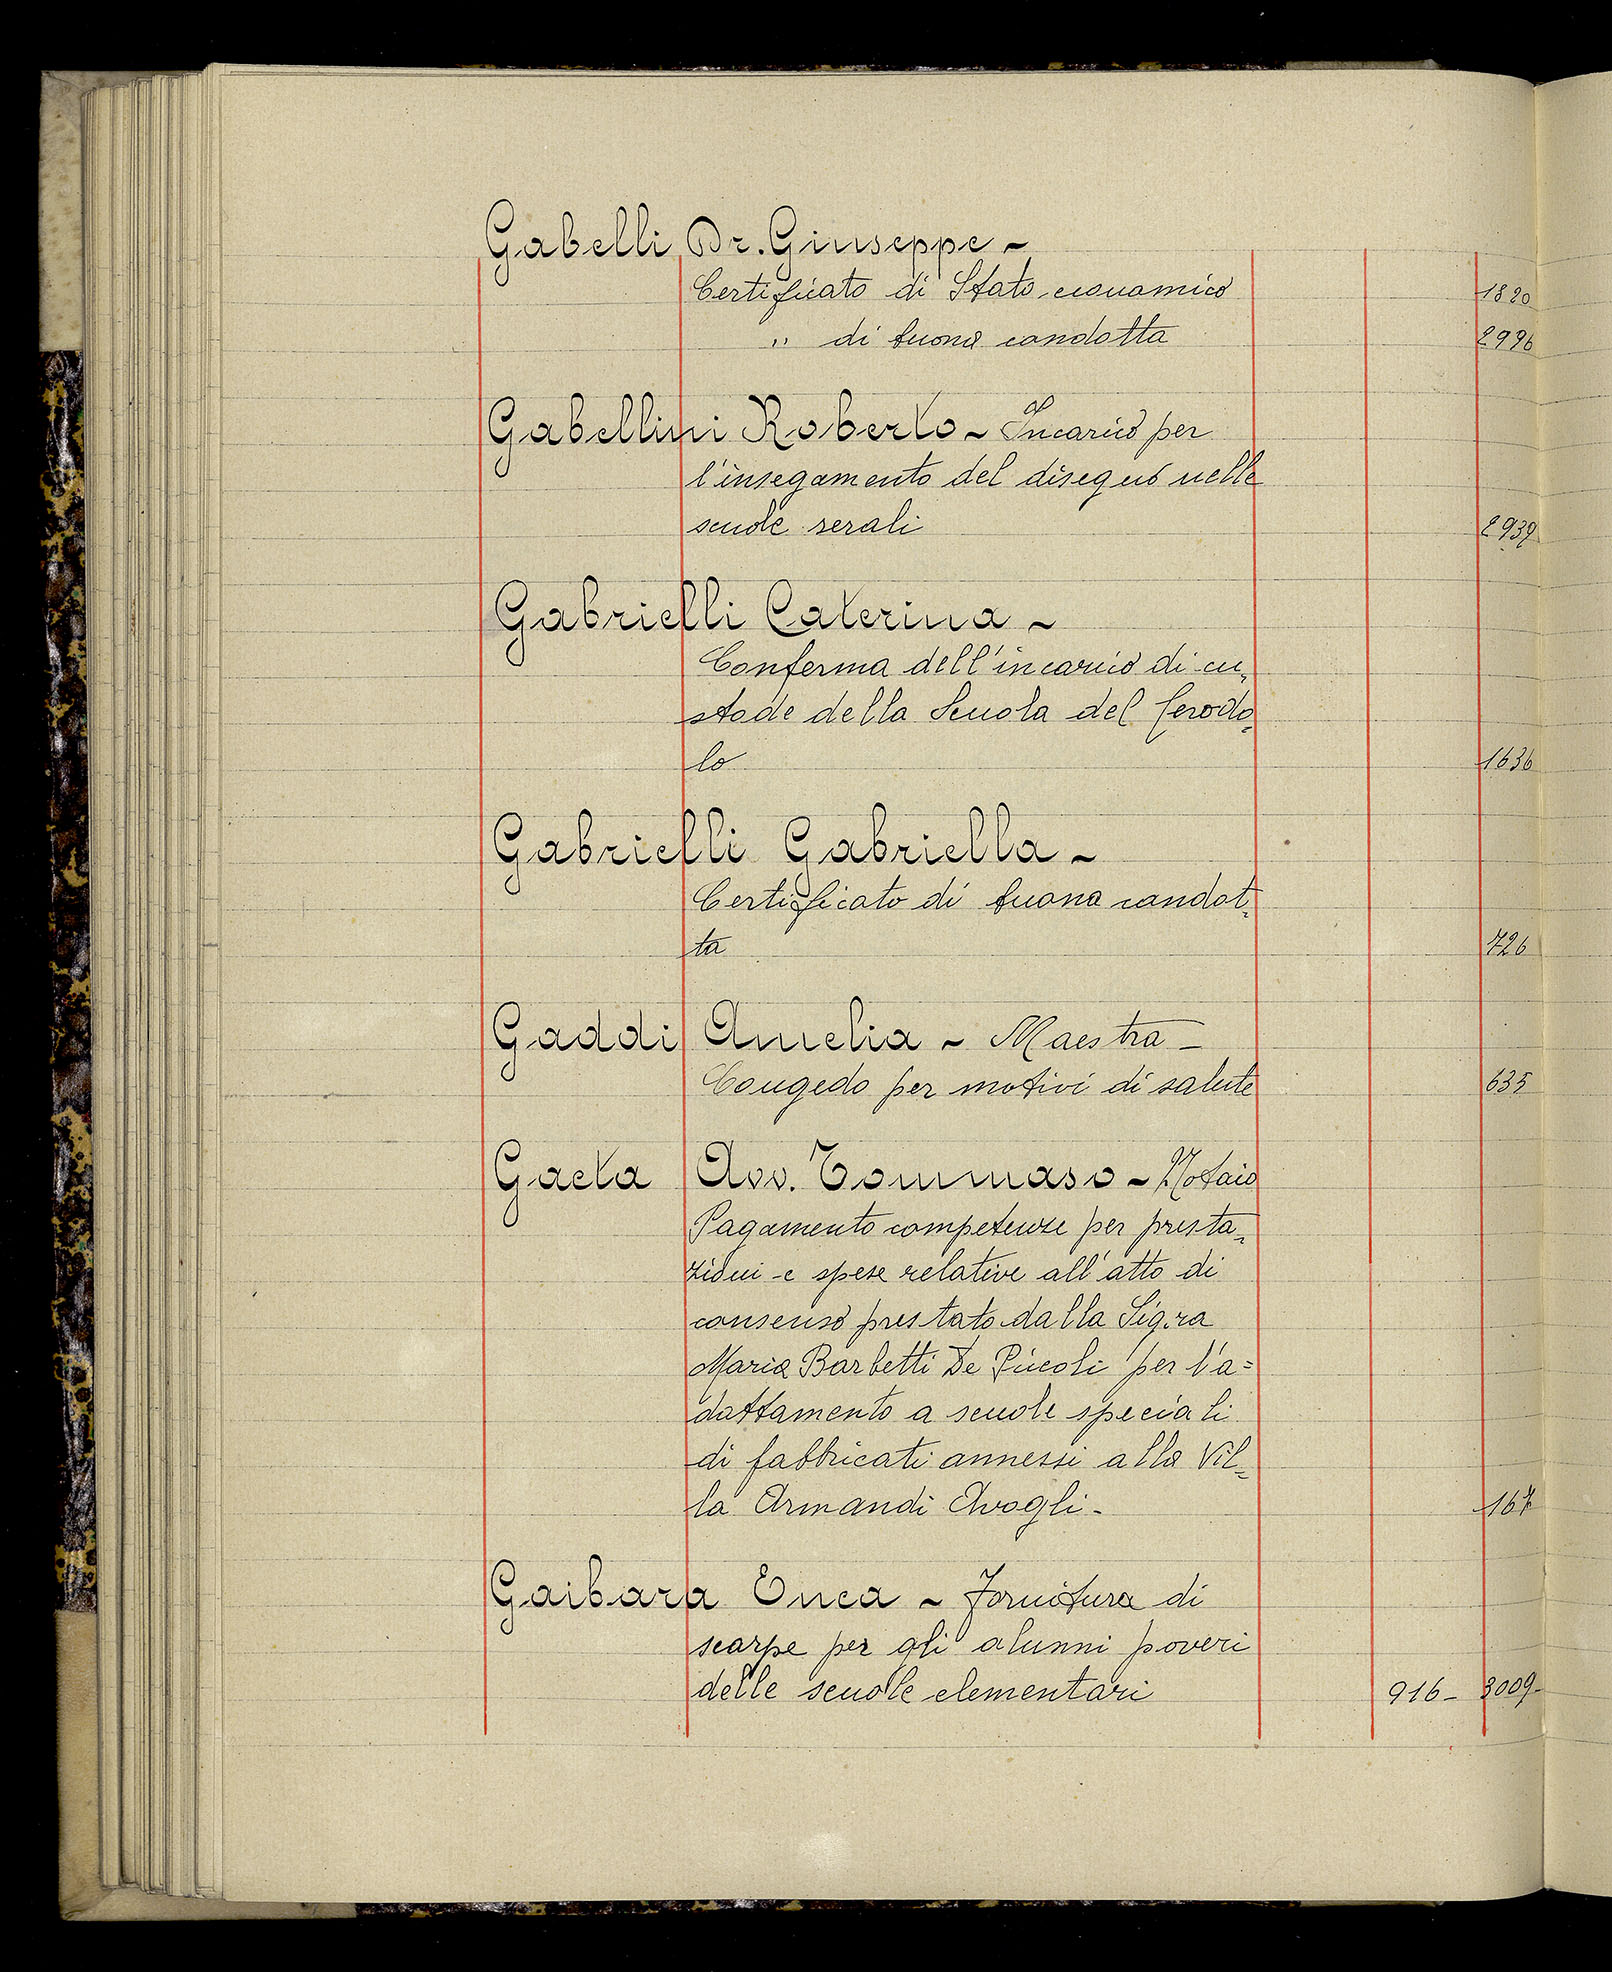 Gabelli Dr. Giuseppe ~
Certificato di Stato economico 1820
" di buona condotta 2996
Gabellini Roberto ~ Incarico per
l'insegamento del disegno nelle
scuole serali 2939
Gabrielli Caterina ~
Conferma dell'incarico di cu=
stode della Scuola del
lo 1636
Gabrielli Gabriella ~
Certificato di buona condot=
ta 726
Gaddi Amelia ~ Maestra –
Congedo per motivi di salute 635
Gaeta Avv. Tommaso ~ Notaio
Pagamento competenze per presta=
zioni e spese relative all'atto di
consenso prestato dalla Sig.ra
Maria Barbetti De Piccoli per l'a=
dattamento a scuole speciali
di fabbricati annessi alla Vil=
la Armandi Avogli – 167
Gaibara Enea ~ Fornitura di
scarpe per gli alunni poveri
delle scuole elementari 916– 3009–